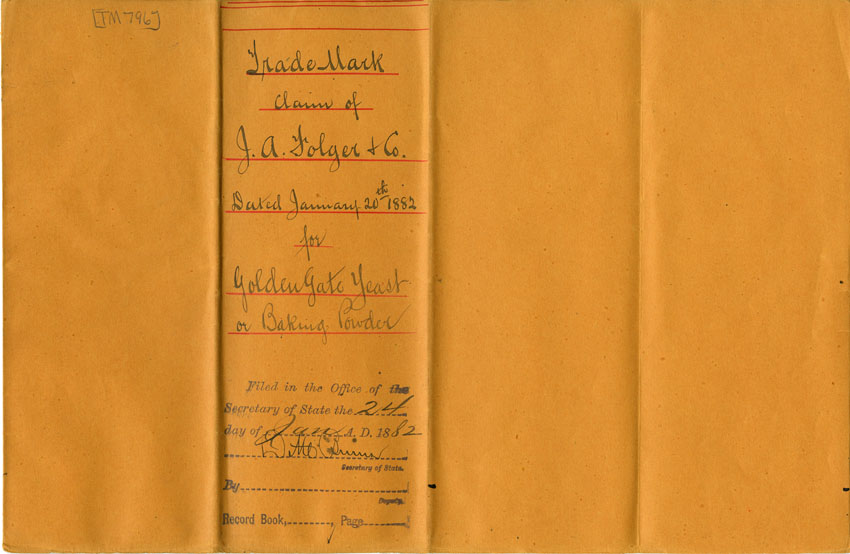 [TM 796]
Trade Mark
Claim of
J. A. Folger & Co.
Dated January 20th 1882
for
Golden Gate Yeast
or Baking Powder
Filed in the Office of the
Secretary of State the 24
day of Jan A. D. 1882
Secretary of State.
By
Deputy.
Record Book, Page